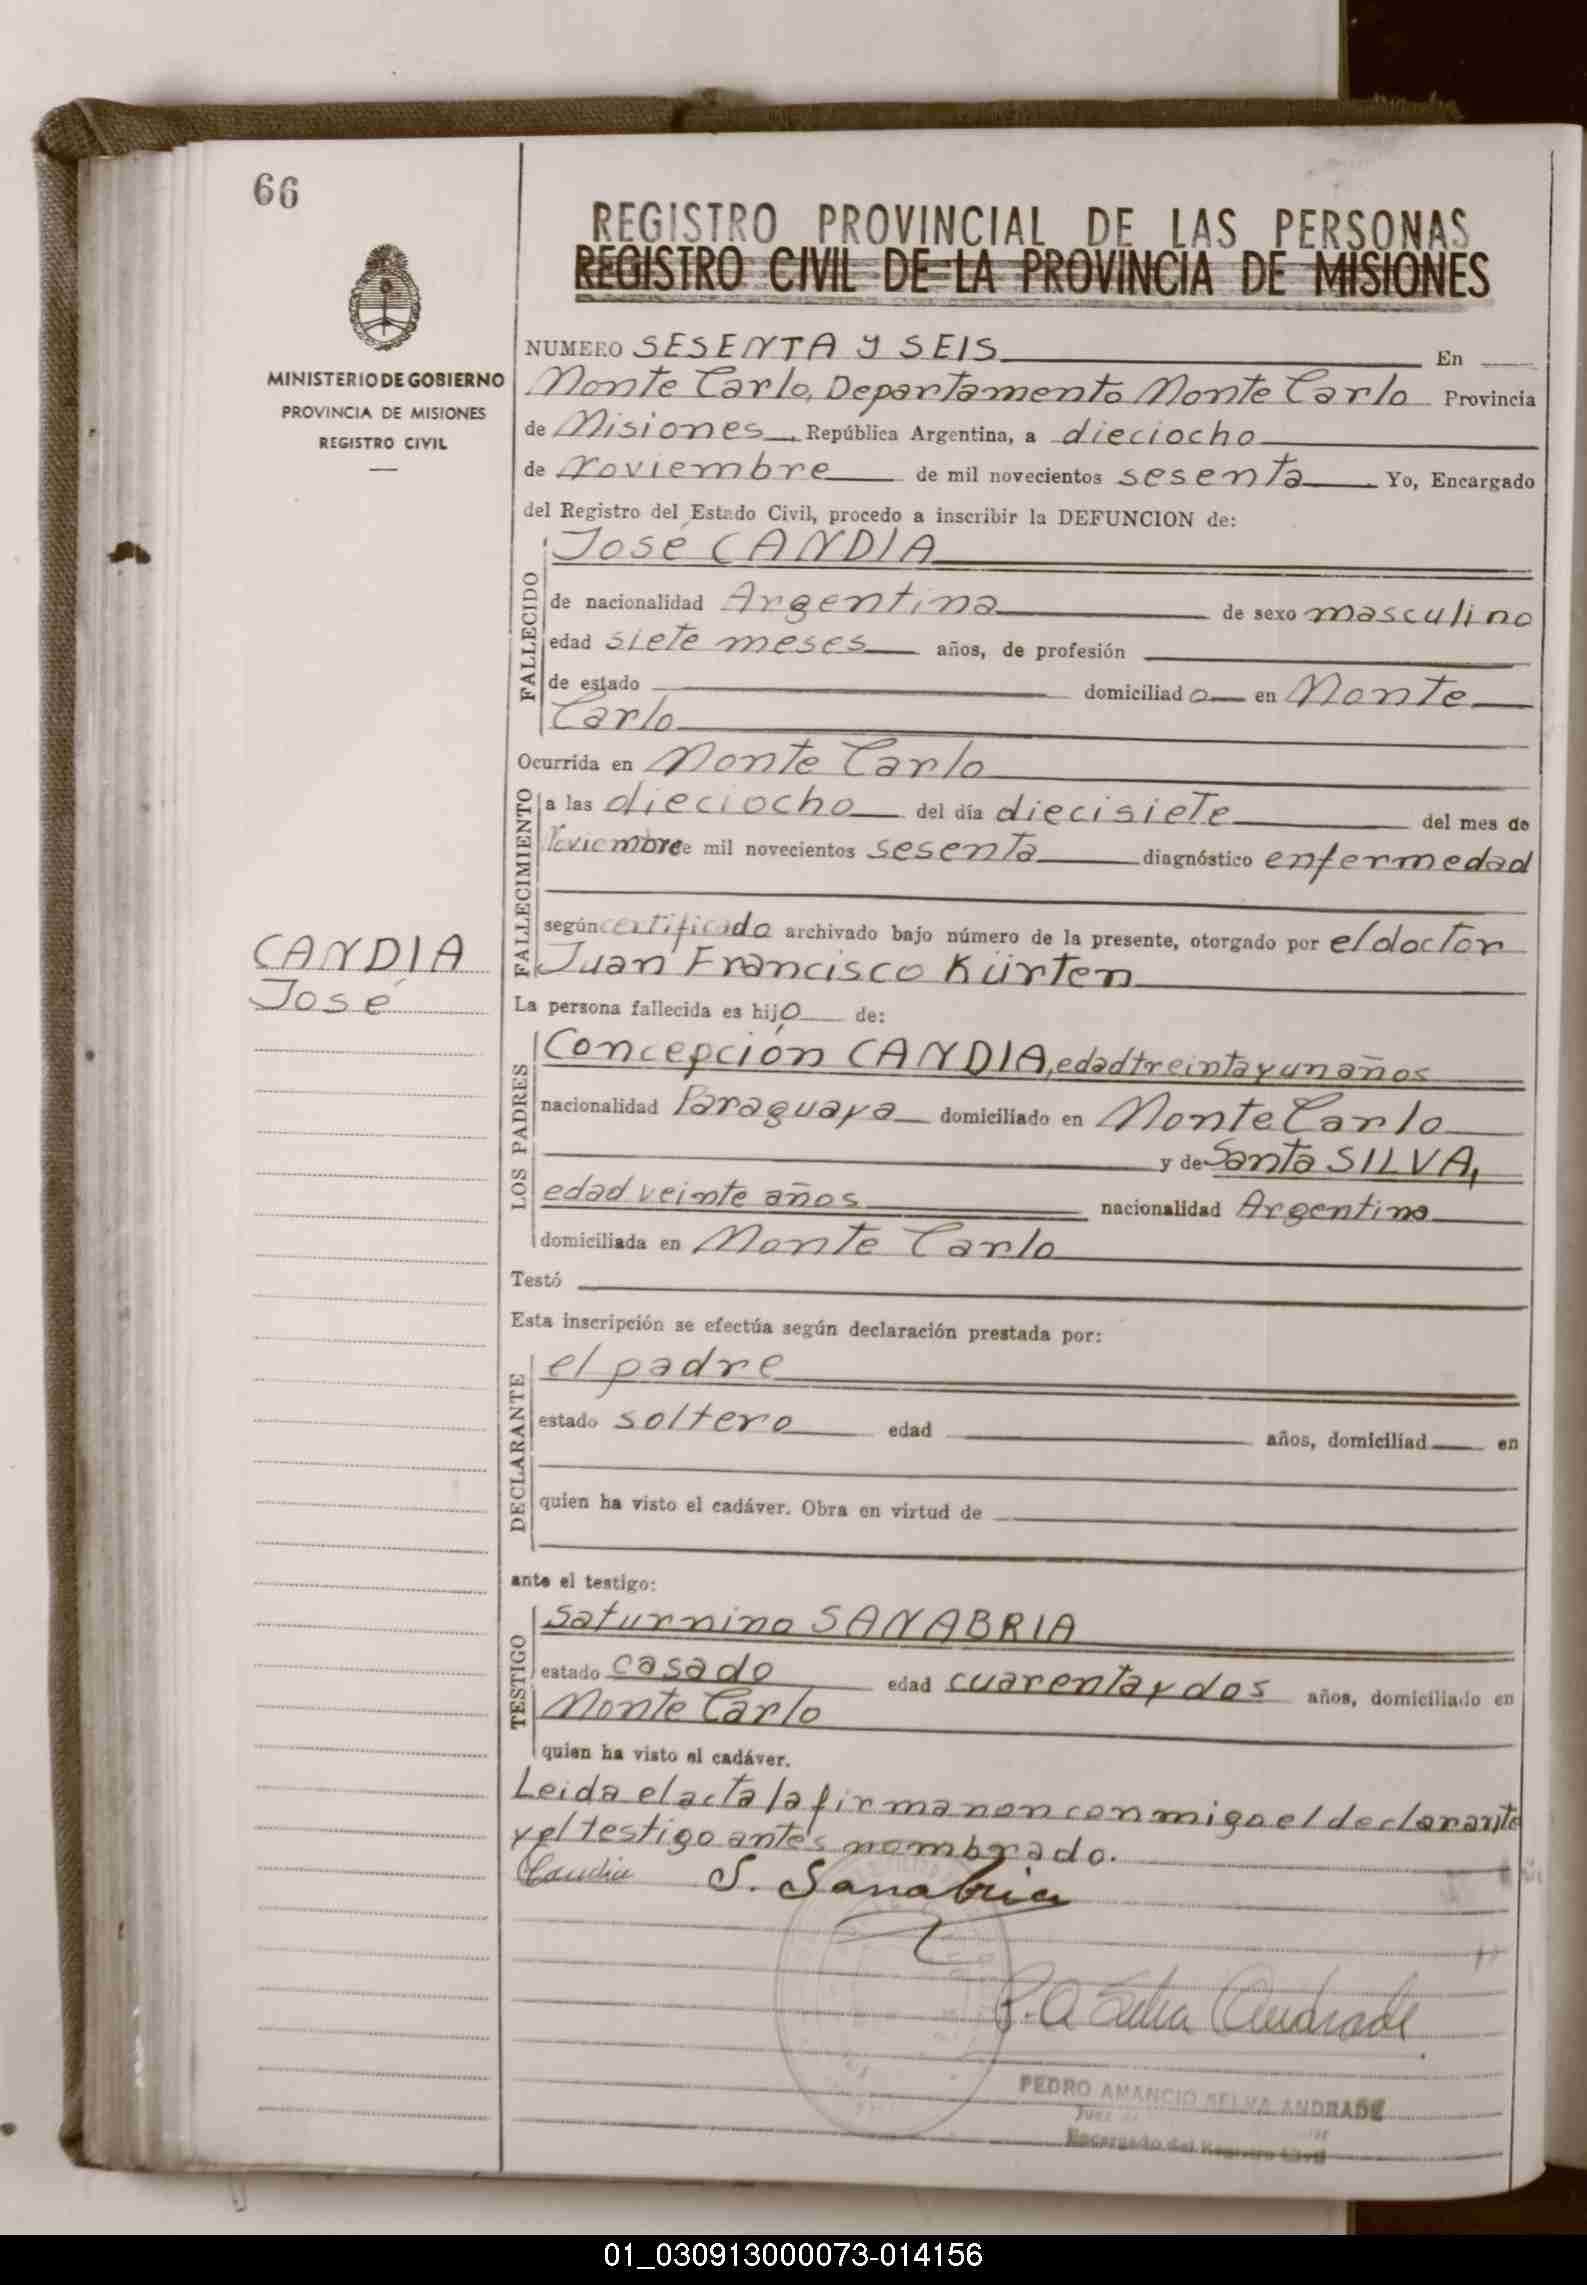 66
REGISTRO PROVINCIAL DE LAS PERSONAS
REGISTRO CIVIL DE LA PROVINCIA DE MISIONES
MINISTERIO DE GOBIERNO
PROVINCIA DE MISIONES
REGISTRO CIVIL
NUMERO SESENTA Y SEIS En
Monte Carlo, Departamento Monte Carlo Provincia
de Misiones, República Argentina, a dieciocho
de noviembre de mil novecientos sesenta Yo, Encargado
del Registro del Estado Civil, procedo a inscribir la DEFUNCION de:
FALLECIDO
José CANDIA
de nacionalidad Argentina de sexo masculino
edad siete meses años, de profesión
de estado domiciliado en Monte
Carlo
Ocurrida en Monte Carlo
FALLECIMIENTO
a las dieciocho del día diecisiete del mes de
Noviembre de mil novecientos sesenta diagnóstico enfermedad
según certificado archivado bajo número de la presente, otorgado por el doctor
Juan Francisco Kürten
CANDIA
José
La persona fallecida es hijo de:
LOS PADRES
Concepción CANDIA, edad treinta y un años
nacionalidad Paraguaya domiciliado en Monte Carlo
y de Santa SILVA,
edad veinte años nacionalidad Argentina
domiciliada en Monte Carlo
Testó
Esta inscripción se efectúa según declaración prestada por:
DECLARANTE
el padre
estado soltero edad años, domiciliad en
quien ha visto el cadáver. Obra en virtud de
ante el testigo:
TESTIGO
Saturnino SANABRIA
estado casado edad cuarenta y dos años, domiciliado en
Monte Carlo
quien ha visto el cadáver.
Leida el acta la firmanon conmigo el declarante
y el testigo antes nombrado.
Candia S. Sanabria
P. A. Selva Andrade
PEDRO AMANCIO SELVA ANDRADE
Juez de
Encargado del Registro Civil
01_030913000073-014156